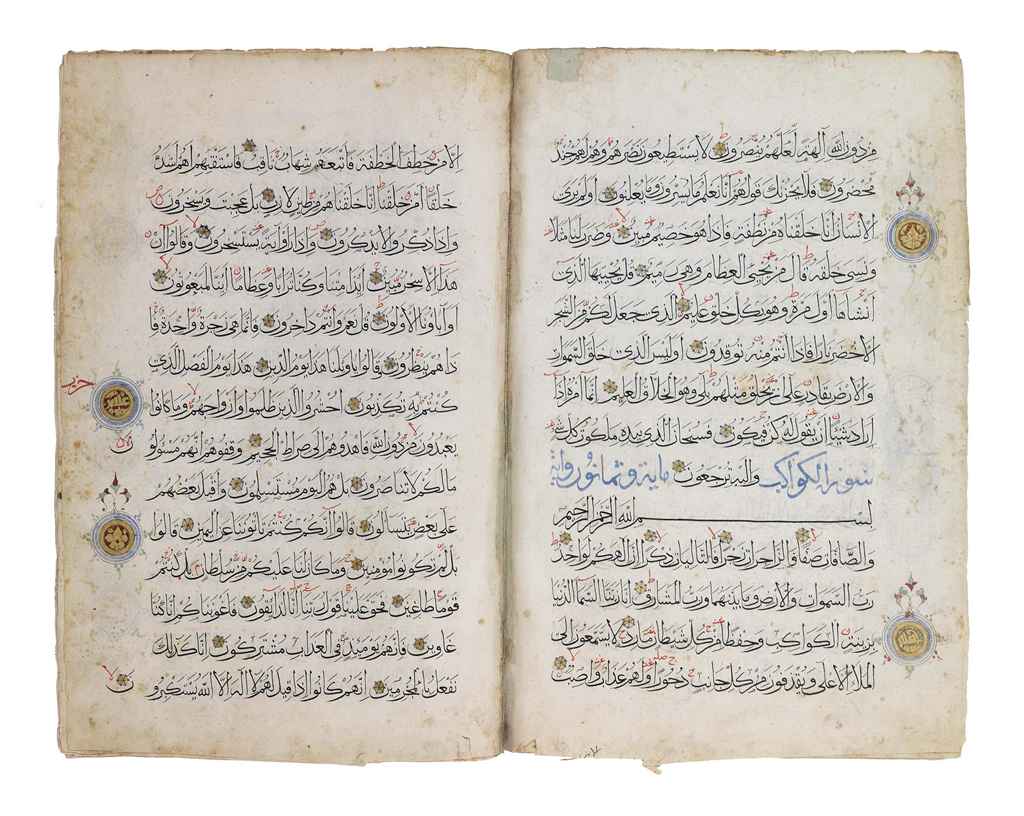 من دون الله آلهة لعلهم ينصرون لا يستطيعون نصرهم وهم لهم جند
محضرون فلا يحزنك قولهم إنا نعلم ما يسرون وما يعلنون أولم ير
الإنسان أنا خلقناه من نطفة فإذا هو خصيم مبين وضرب لنا مثلا
ونسي خلقه قال من يحيي العظام وهي رميم قل يحييها الذي
أنشأها أول مرة وهو بكل خلق عليم الذي جعل لكم من الشجر
الأخضر نارا فإذا أنتم منه توقدون أوليس الذي خلق السموات
والأرض بقادر على أن يخلق مثلهم بلى وهو الخلاق العليم إنما أمره إذا
أراد شيئا أن يقول له كن فيكون فسبحان الذي بيده ملكوت كل شيء
سورة الكواكب وإليه ترجعون ماية وثمانون
بسم الله الرحمن الرحيم
والصافات صفا فالزاجرات زجرا فالتاليات ذكرا إن إلهكم لواحد
رب السموات والأرض وما بينهما ورب المشارق إنا زينا السماء الدنيا
بزينة الكواكب وحفظا من كل شيطان مارد لا يسمعون إلى
الملإ الأعلى ويقذفون من كل جانب دحورا ولهم عذاب واصب
إلا من خطف الخطفة فأتبعه شهاب ثاقب فاستفتهم أهم أشد
خلقا أم من خلقنا إنا خلقناهم من طين لازب بل عجبت ويسخرون
وإذا ذكروا لا يذكرون وإذا رأوا آية يستسخرون وقالوا إن
هذا إلا سحر مبين أئذا متنا وكنا ترابا وعظاما أئنا لمبعوثون
أوآباؤنا الأولون قل نعم وأنتم داخرون فإنما هي زجرة واحدة فإ
ذا هم ينظرون وقالوا يا ويلنا هذا يوم الدين هذا يوم الفصل الذي
حزب
كنتم به تكذبون احشروا الذين ظلموا وأزواجهم وما كانوا
يعبدون من دون الله فاهدوهم إلى صراط الجحيم وقفوهم إنهم مسئولو ن
ما لكم لا تناصرون بل هم اليوم مستسلمون وأقبل بعضهم
على بعض يتساءلون قالوا إنكم كنتم تأتوننا عن اليمين قالوا
بل لم تكونوا مؤمنين وما كان لنا عليكم من سلطان بل كنتم
قوما طاغين فحق علينا قول ربنا إنا لذائقون فأغويناكم إنا كنا
غاوين فإنهم يومئذ في العذاب مشتركون إنا كذلك
نفعل بالمجرمين إنهم كانوا إذا قيل لهم لا إله إلا الله يستكبرو ن